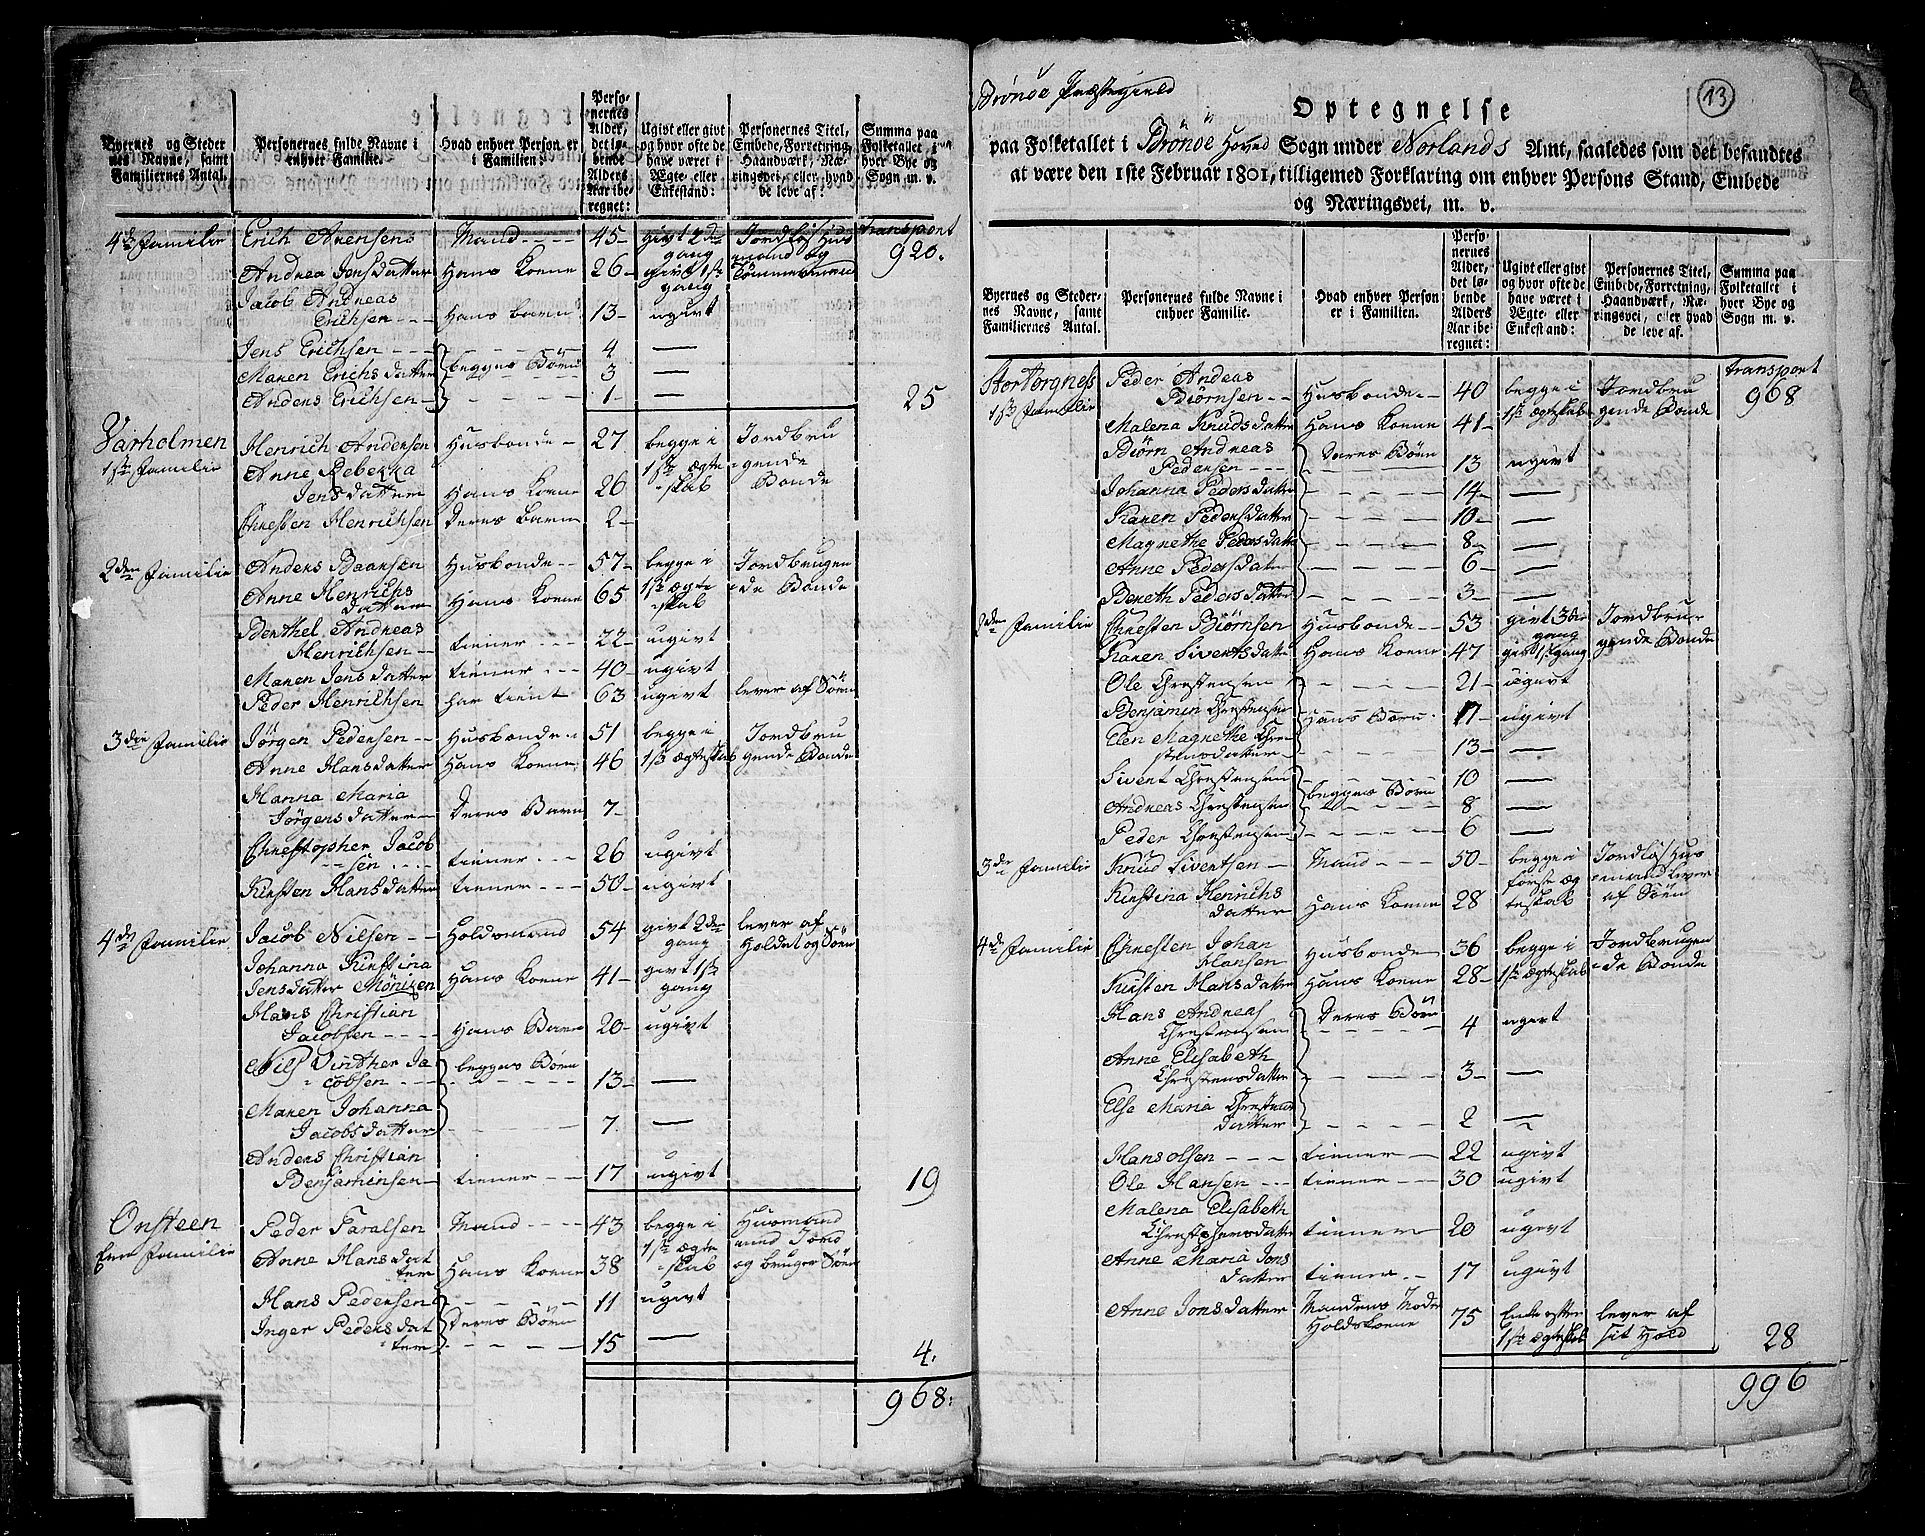 Byernes og Steder
nes Navne, samt
Familiernes Antal.
Personernes fulde Navne i
enhver Familie.
Hvad enhver Person er
i Familien.
Perso-
nernes
Alder,
det lø-
bende
Alders
Aar ibe-
regnet:
Ugivt eller givt
og hvor ofte de
have været i
Ægte- eller
Enkestand:
Personernes Titel,
Embede, Forretning,
Haandværk, Næ-
ringsvei, eller hvad
de leve af:
Summa paa
Folketallet i
hver Bye og
Sogn m. v.
transport
920.
4de Familie Erich Arensens Mand 45 givt 2den gang Jordløs Huusmand og Tømmermand
Andrea Jensdatter Hans Koene 26 givt 1ste gang
Jacob Andreas
Erichsen Hans barn 13 ugivt
Jens Erichsen 4 —
Maren Erichsdatter begges Børn 3 —
Anders Erichsen 1 —
25
Varholmen
1ste Familie Henrich Andersen Husbonde 27 begge i 1ste ægteskab Jordbrugende Bonde
Anne Rebekka
Jensdatter Hans Koene 26
Christen Henrichsen Deres barn 2
2den Familie Anders Baarsen Husbonde 57 begge i 1ste ægteskab Jordbrugende Bonde
Anne Henrichs
datter Hans Koene 65
Berthel Andreas
Henrichsen tiener 22 ugivt
Maren Jensdatter tiener 40 ugivt
Peder Henrichsen har tient 63 ugivt lever af Søen
3die Familie Jørgen Pedersen Husbonde 51 begge i 1ste ægteskab Jordbrugende Bonde
Anne Hansdatter Hans Koene 46
Hanna Maria
Jørgensdatter Deres Barn 7
Christopher Jacob
sen tiener 26 ugivt
Kirsten Hansdatter tiener 50 ugivt
4de Familie Jacob Nilsen Holdsmand 54 givt 2den gang lever af Holdet og Søen
Johanna Kirstina
Jensdatter Mönizen Hans Koene 41 givt 1ste gang
Hans Christian
Jacobsen Hans Barn 20 ugivt
Nils Vinther Ja
cobsen begges Børn 13 —
Maren Johanna
Jacobsdatter 7 —
Anders Christian
Benjaminsen tiener 17 ugivt
19
Onsteen
Een Familie Peder Taralsen Mand 43 begge i 1ste ægteskab Huusmand med Jord og bruger Søen
Anne Hansdat
ter Hans Koene 38
Hans Pedersen 11 ugivt
Inger Pedersdat
ter Deres Børn 15 —
4.
968.
Brönöe Præstegield
13
Optegnelse
paa Folketallet i Brönöe Hoved Sogn under Norlands Amt, saaledes som det befandtes
at være den 1ste Februar 1801, tilligemed Forklaring om enhver Persons Stand, Embede
og Næringsvei, m. v.
Byernes og Steder-
nes Navne, samt
Familiernes Antal.
Personernes fulde Navne i
enhver Familie.
Hvad enhver Person
er i Familien.
Perso-
nernes
Alder,
det lø-
bende
Alders
Aar ibe-
regnet:
Ugivt eller givt
og hvor ofte de
have været i
Ægte- eller
Enkestand:
Personernes Titel,
Embede, Forretning,
Haandværk, Næ-
ringsvei, eller hvad
de leve af.
Summa paa
Folketallet i
hver Bye og
Sogn m. v.
transport
968
StorTorgness
1ste Familie Peder Andeas
Biørnsen Husbonde 40 begge i 1ste ægteskab Jordbrugende Bonde
Malena Knudsdatter Hans Koene 41
Biørn Andreas
Pedersen Deres Børn 13 ugivt
Johanna Pedersdatter 14 —
Karen Pedersdatter 10 —
Magrethe Pedersdatter 8 —
Anne Pedersdatter 6 —
Bereth Pedersdatter 3 —
2den Familie Christen Biørnsen Husbonde 53 givt 3die gang Jordbrugende Bonde
Karen Sivertsdatter Hans Koene 47 givt 1ste gang
Ole Christensen 21 ugivt
Benjamin Christensen Hans Børn 17 ugivt
Elen Magrethe Chri
stensdatter 13 —
Sivert Christensen 10 —
Andreas Christensen begges Børn 8 —
Peder Christensen 6 —
3die Familie Knud Sivertsen Mand 50 begge i første ægteskab Jordløs Huusmand lever af Søen
Kirstina Henrichs
datter Hans Koene 28
4de Familie Christen Johan
Hansen Husbonde 36 begge i 1ste ægteskab Jordbrugende Bonde
Kirsten Hansdatter Hans Koene 28
Hans Andreas
Christensen Deres Børn 4 ugivt
Anne Elisabeth
Christensdatter 3 —
Else Maria Christens
datter 2 —
Hans Olsen tiener 22 ugivt
Ole Hansen tiener 30 ugivt
Malena Elisabeth
Christophersdatter tiener 20 ugivt
Anne Maria Jons
datter tiener 17 ugivt
Anne Jonsdatter Mandens Moder Holdskoene 75 Enke efter 1ste ægteskab lever af sit Hold
28
996